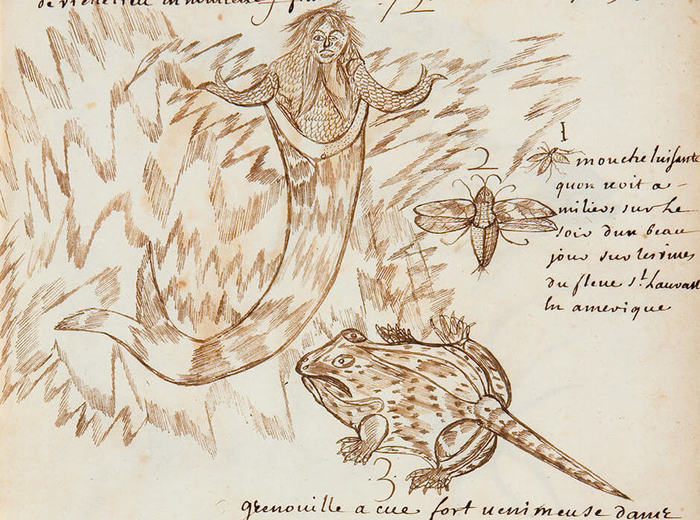 de richelieu
1
mouche luisante
quon voit a
miliers sur le
soir dun beau
jour sur les rives
du fleuve st. Laurent
En amerique
2
3
grenouille a cue fort uenimeuse dame